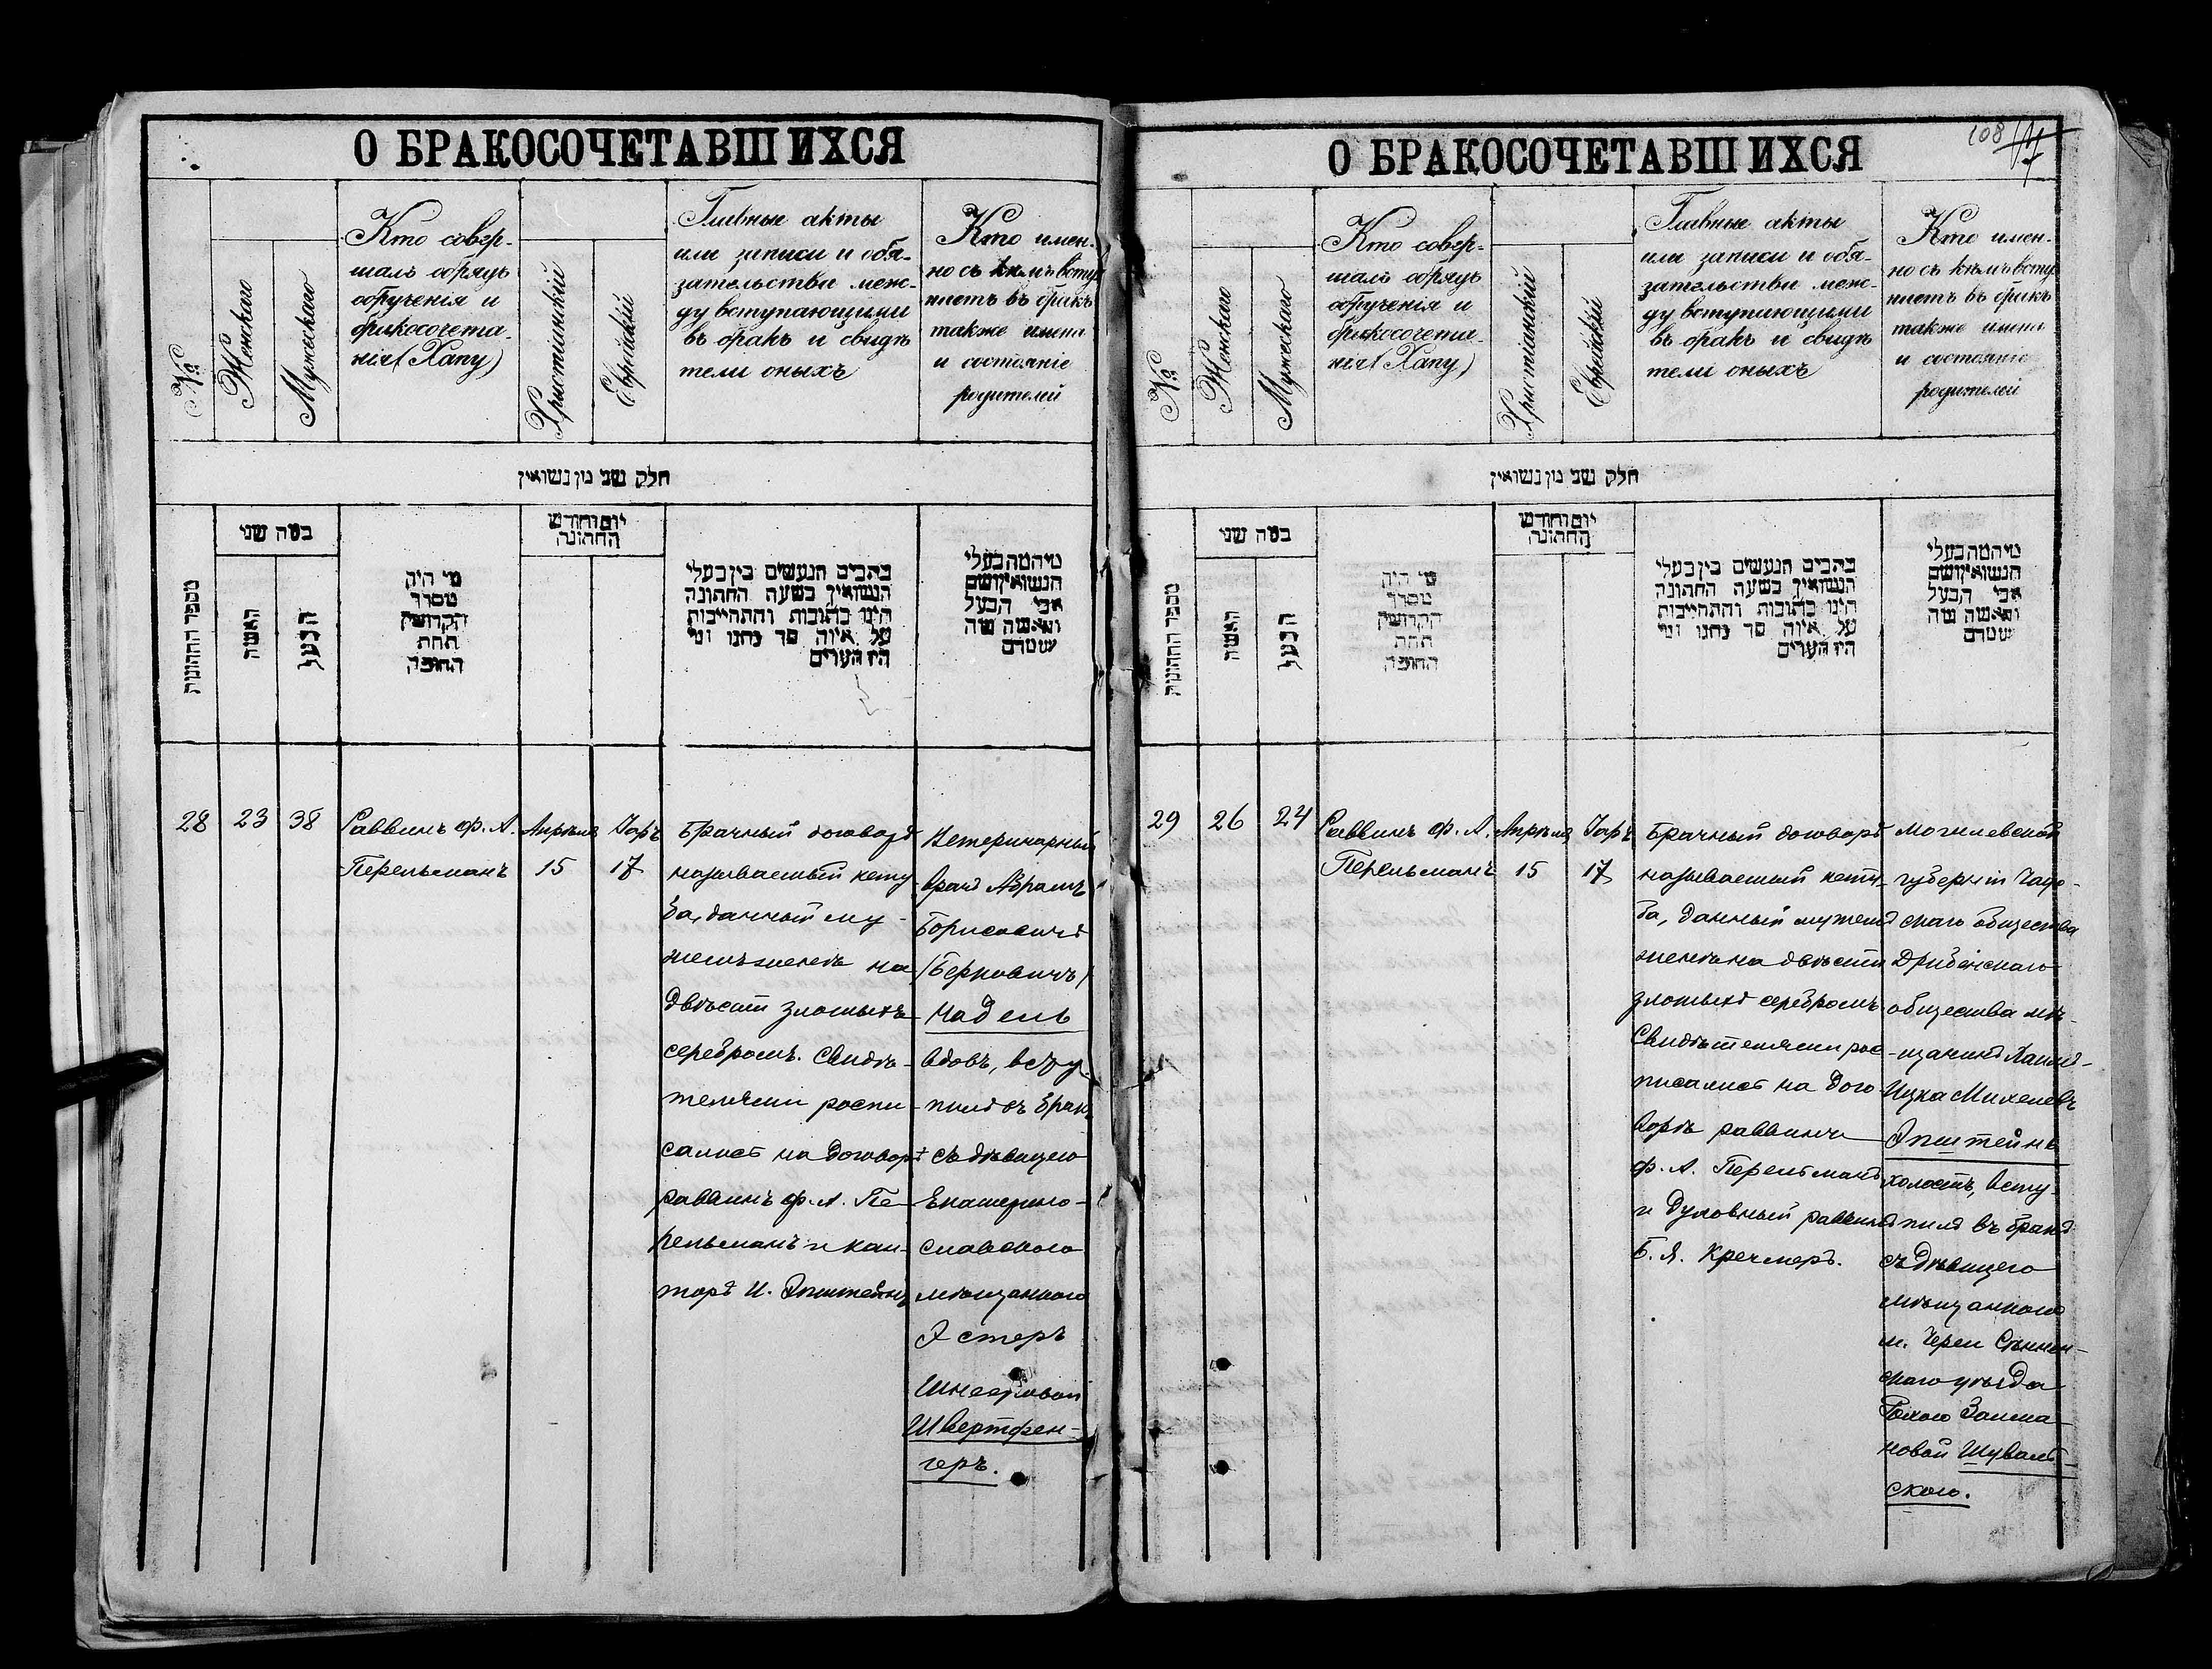 О БРАКОСОЧЕТАВШИХСЯ
№
Женскаго
Мужескаго
Кто совер-
шалъ обрядъ
обрученія и
бракосочета-
нія (Хапу)
Христіанскій
Еврейскій
Главные акты
или записи и обя-
зательства меж-
ду вступающими
въ бракъ и свидѣ
тели оныхъ
Кто имен-
но съ кѣмъ всту
паетъ въ бракъ
также имена
и состояніе
родителей
חלק שני מן נשואין
מספר החתונות
כמה שני
האשה
הבעל
מי היה
מסדר
הקדושין
תחת
החופה
יום וחודש
החתונה
כתבים הנעשים בין בעלי
הנשואין בשעה החתונה
היינו כתובות והתחייבות
על איזה סך נתנו ומי
היו העדים
מי המה בעלי
הנשואין ושם
אבי הבעל
והאשה
28
23
38
Раввинъ Ф. А.
Перельманъ
Апрѣля
15
Іаръ
17
Брачный договоръ
называемый кету
ба, данный му-
жемъ женѣ на
двѣсти злотыхъ
серебромъ. Свидѣ-
телями распи-
сались на договорѣ
раввинъ Ф. А. Пе-
рельманъ и кан-
торъ И. Эпштейнъ
Ветеринарный
врачъ Абрамъ
Борисовичъ
(Берковичъ)
Надель
вдовъ, всту-
пилъ въ бракъ
съ дѣвицею
Екатерино-
славскою
мѣщанкою
Эстеръ
Шнееровой
Швертфен-
геръ.
108
О БРАКОСОЧЕТАВШИХСЯ
№
Женскаго
Мужескаго
Кто совер-
шалъ обрядъ
обрученія и
бракосочета-
нія (Хапу)
Христіанскій
Еврейскій
Главные акты
или записи и обя-
зательства меж-
ду вступающими
въ бракъ и свидѣ
тели оныхъ
Кто имен-
но съ кѣмъ всту
паетъ въ бракъ
также имена
и состояніе
родителей
חלק שני מן נשואין
מספר החתונות
כמה שני
האשה
הבעל
מי היה
מסדר
הקדושין
תחת
החופה
יום וחודש
החתונה
כתבים הנעשים בין בעלי
הנשואין בשעה החתונה
היינו כתובות והתחייבות
על איזה סך נתנו ומי
היו העדים
מי המה בעלי
הנשואין ושם
אבי הבעל
והאשה
29
26
24
Раввинъ Ф. А.
Перельманъ
Апрѣля
15
Іаръ
17
Брачный договоръ
называемый кету-
ба, данный мужемъ
женѣ на двѣсти
злотыхъ серебромъ
Свидѣтелями рос-
писались на дого
ворѣ раввинъ
Ф. А. Перельманъ
и духовный раввинъ
Б. Я. Кречмеръ.
Могилевской
губерніи Чаус-
скаго общества
Дрибенскаго
общества мѣ-
щанинъ Хаимъ-
Ицка Михелевъ
Эпштейнъ
холостъ, всту-
пилъ въ бракъ
съ дѣвицею
мѣщанкою
м. Череи Сѣннен-
скаго уѣзда
Залма-
новой Шуваль-
скою.